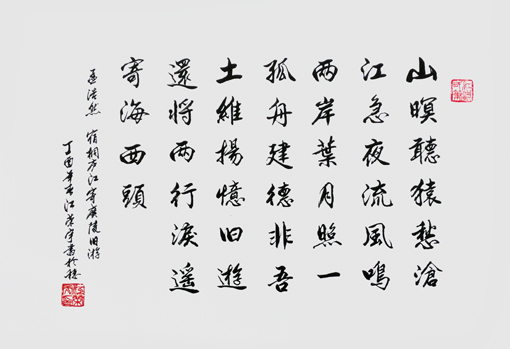 山暝聽猿愁滄
江急夜流風鳴
两岸葉月照一
孤舟建德非吾
土維揚憶旧遊
還将两行淚遥
寄海西頭
孟浩然 宿桐庐江寄廣陵旧游
丁酉年春江荣宇書於